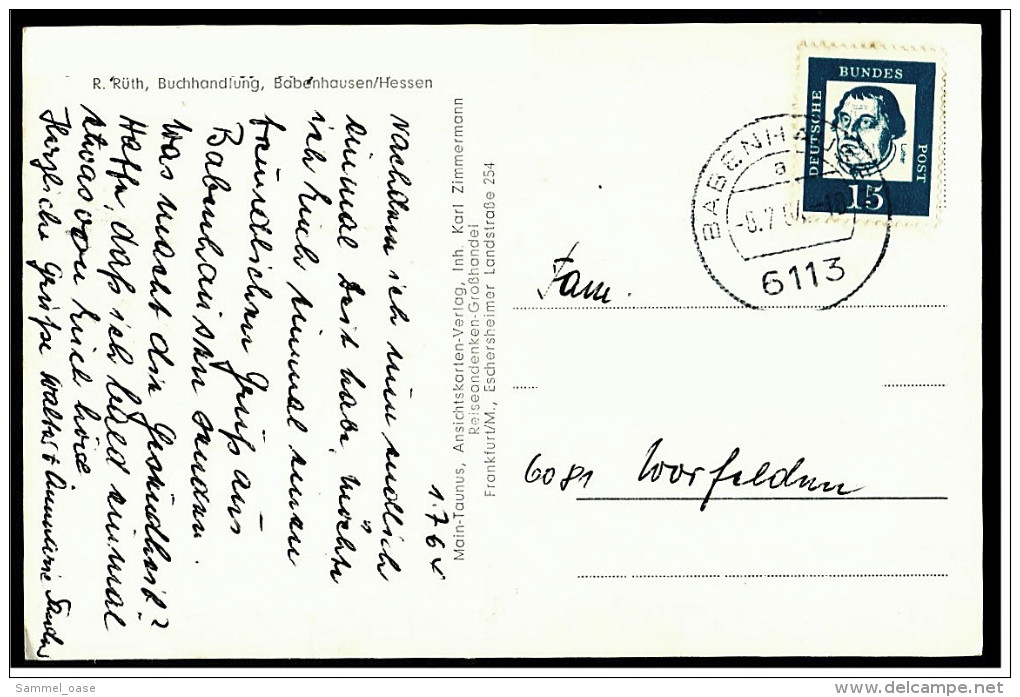 R. Rüth, Buchhandlung, Babenhausen/Hessen
1.7.64
Nachdem ich nun endlich
einmal Zeit habe, möchte
ich Euch einmal einen
freundlichen Gruß aus
Babenhausen senden.
Was macht die Gesundheit?
Hoffe, daß ich bald einmal
etwas von Euch höre.
Herzliche Grüße Walter + Anneliese
Main-Taunus, Ansichtskarten-Verlag, Inh. Karl Zimmermann
Reiseandenken-Großhandel
Frankfurt/M., Eschersheimer Landstraße 254
DEUTSCHE
BUNDES
POST
Luther
15
BABENHAUSEN
a
-8.7.64.-18
6113
Fam.
6081 Worfelden
Sammel_oase
www.delcampe.net